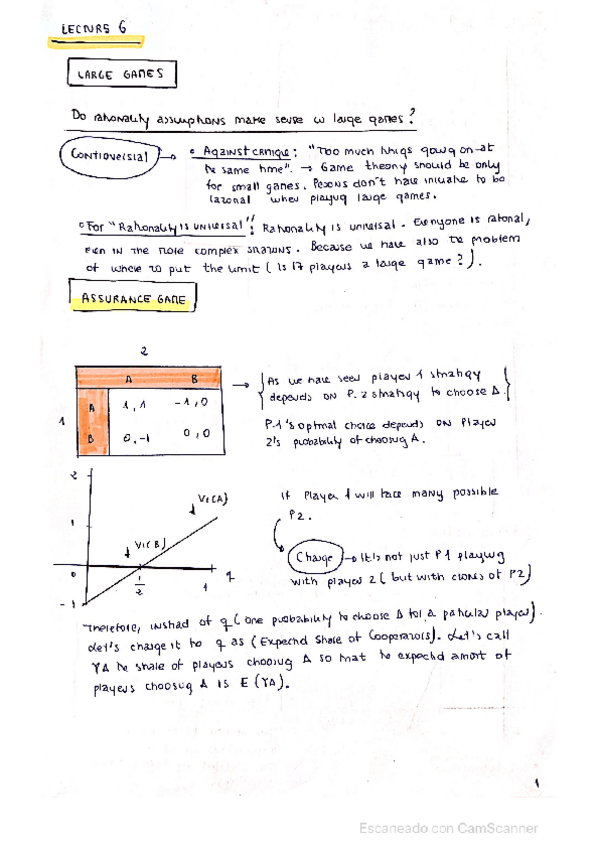 LECTURS 6
LARGE GAMES
Do rationality assumptions make sense in large games?
Controversial → • Against critique: "Too much things going on at
the same time". → Game theory should be only
for small games. Persons don't have initiative to be
rational when playing large games.
• For "Rationality is universal": Rationality is universal. Everyone is rational,
even in the more complex situations. Because we have also the problem
of where to put the limit (Is 17 players a large game?).
ASSURANCE GAME
2
A B
1 A 1,1 -1,0
B 0,-1 0,0
→ As we have seen player 1 strategy
depends on P.2 strategy to choose A.
P.1's optimal choice depends on Player
2's probability of choosing A.
2
1
0
-1
V1(A)
V1(B)
1/2
1 q
If Player 1 will face many possible
P2.
Change → It is not just P1 playing
with player 2 (but with clones of P2)
Therefore, instead of q (one probability to choose A for a particular player).
Let's change it to q as (Expected Share of Cooperators). Let's call
YA the share of players choosing A so that the expected amount of
players choosing A is E(YA).
1
Escaneado con CamScanner